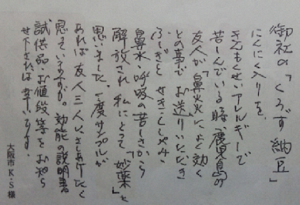 御社の「くろず納豆」
にんにく入りを
きんもくせいアレルギーで
苦しんでいる時、鹿児島の
友人が「鼻炎によく効く
との事でお送りいただき
ふしぎと せき・くしゃみ・
鼻水、呼吸の苦しさから
解放され 私にとって「妙薬」と
思いました。一度サンプルが
あれば友人三人にさしあげたく
思っていますが。効能の説明書
試供品、お値段等をお知ら
せ下されば幸いです。
大阪市 K・S様